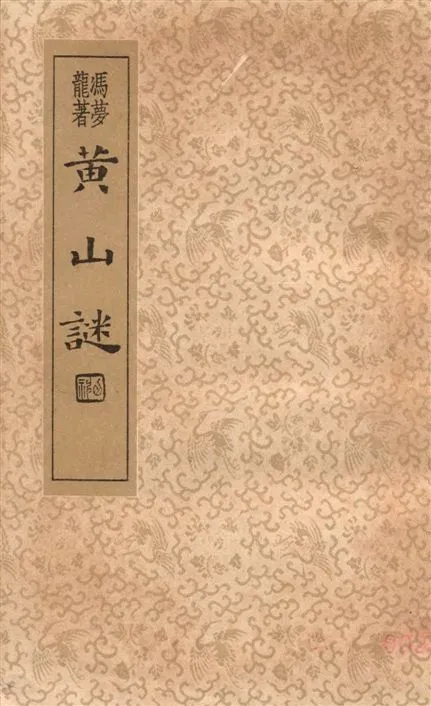 馮夢
龍著
黄山謎